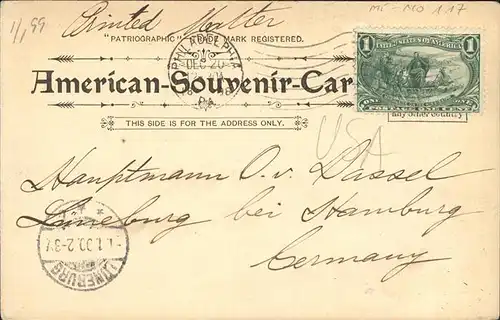 1/1 99
Printed Matter
Mi-No 117
"PATRIOGRAPHIC" TRADE MARK REGISTERED.
PHILADELPHIA
DEC 20
PA.
1 UNITED STATES OF AMERICA 1
American-Souvenir-Car
any other country
THIS SIDE IS FOR THE ADDRESS ONLY.
USA
Hauptmann O. v. Dassel
Lüneburg bei Hamburg
Germany
1.1.00.2-3N
LÜNEBURG